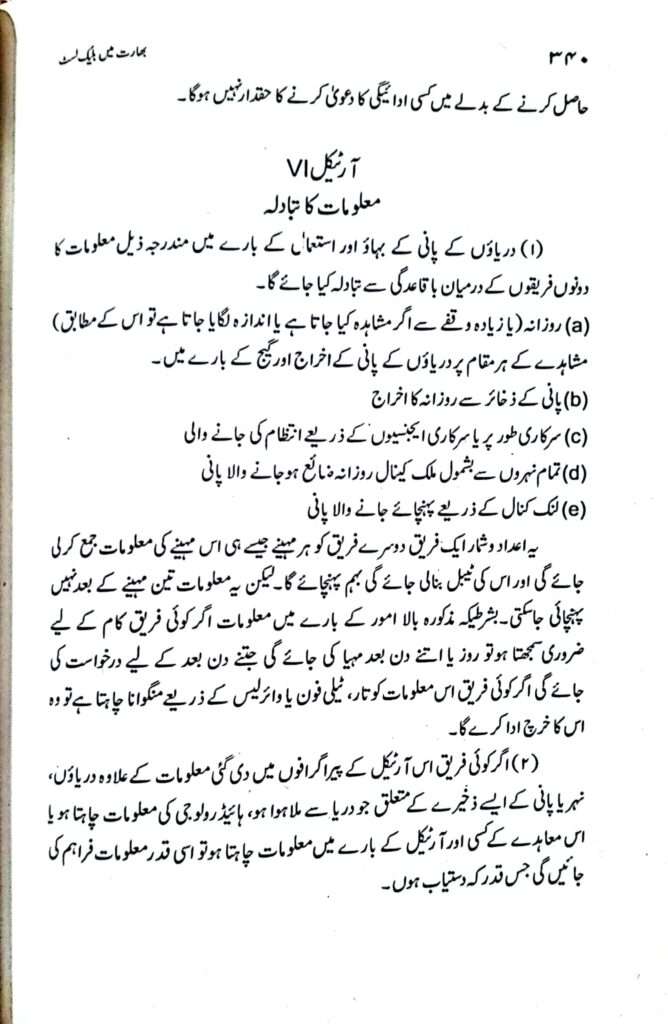 ۳۴۰
بھارت میں بلیک لسٹ
حاصل کرنے کے بدلے میں کسی ادائیگی کا دعویٰ کرنے کا حقدار نہیں ہوگا۔
آرٹیکل VI
معلومات کا تبادلہ
(۱) دریاؤں کے پانی کے بہاؤ اور استعمال کے بارے میں مندرجہ ذیل معلومات کا
دونوں فریقوں کے درمیان باقاعدگی سے تبادلہ کیا جائے گا۔
(a) روزانہ (یا زیادہ وقفے سے اگر مشاہدہ کیا جاتا ہے یا اندازہ لگایا جاتا ہے تو اس کے مطابق)
مشاہدے کے ہر مقام پر دریاؤں کے پانی کے اخراج اور گیج کے بارے میں۔
(b) پانی کے ذخائر سے روزانہ کا اخراج
(c) سرکاری طور پر یا سرکاری ایجنسیوں کے ذریعے انتظام کی جانے والی
(d) تمام نہروں سے بشمول ملک کینال روزانہ ضائع ہو جانے والا پانی
(e) لنک کنال کے ذریعے پہنچائے جانے والا پانی
یہ اعداد و شمار ایک فریق دوسرے فریق کو ہر مہینے جیسے ہی اس مہینے کی معلومات جمع کر لی
جائے گی اور اس کی ٹیبل بنالی جائے گی بہم پہنچائے گا۔ لیکن یہ معلومات تین مہینے کے بعد نہیں
پہنچائی جاسکتی۔ بشرطیکہ مذکورہ بالا امور کے بارے میں معلومات اگر کوئی فریق کام کے لیے
ضروری سمجھتا ہو تو روز یا اتنے دن بعد مہیا کی جائے گی جتنے دن بعد کے لیے درخواست کی
جائے گی اگر کوئی فریق اس معلومات کو تار، ٹیلی فون یا وائرلیس کے ذریعے منگوانا چاہتا ہے تو وہ
اس کا خرچ ادا کرے گا۔
(۲) اگر کوئی فریق اس آرٹیکل کے پیراگرافوں میں دی گئی معلومات کے علاوہ دریاؤں،
نہر یا پانی کے ایسے ذخیرے کے متعلق جو دریا سے ملا ہوا ہو، ہائیڈرولوجی کی معلومات چاہتا ہو یا
اس معاہدے کے کسی اور آرٹیکل کے بارے میں معلومات چاہتا ہو تو اسی قدر معلومات فراہم کی
جائیں گی جس قدر کہ دستیاب ہوں۔